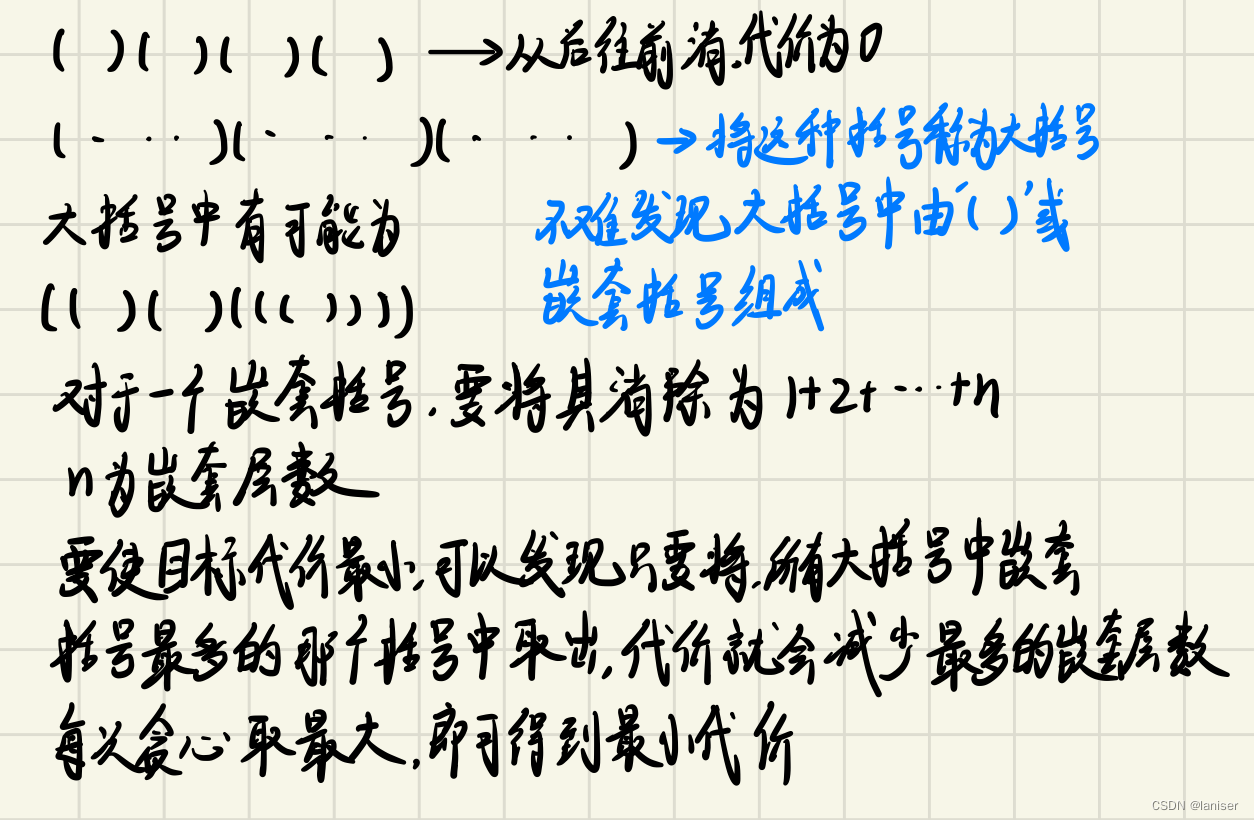 ( )( )( )( ) ⟶从后往前消.代价为0
(- ···)(· - · )(· · · ) →将这种括号称为大括号
大括号中有可能为
不难发现大括号中由'( )'或
(( )( )(((( )))))
嵌套括号组成
对于一个嵌套括号.要将其消除为1+2+···+n
n为嵌套层数
要使目标代价最小,可以发现只要将.所有大括号中嵌套
括号最多的那个括号中取出,代价就会减少最多的嵌套层数
每次贪心取最大,即可得到最小代价
CSDN @laniser